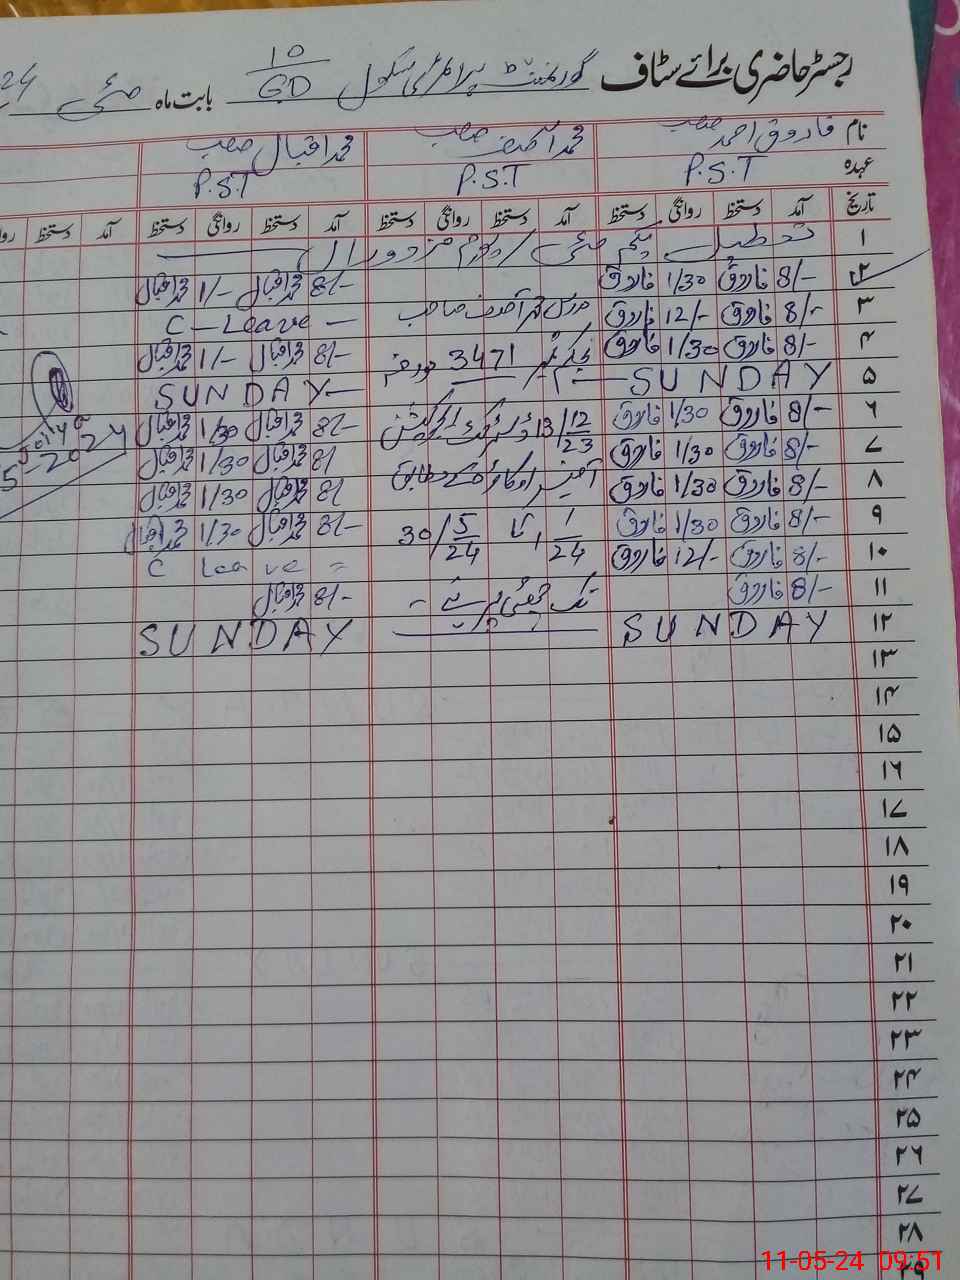 رجسٹر حاضری برائے سٹاف گورنمنٹ پرائمری سکول 10/GD بابت ماہ مئی 24
نام فاروق احمد صاحب محمد آصف صاحب محمد اقبال صاحب
عہدہ P.S.T P.S.T P.S.T
تاریخ آمد دستخط روانگی دستخط آمد دستخط روانگی دستخط آمد دستخط روانگی دستخط آمد دستخط
۱ تعطیل یکم مئی / یوم مزدوراں
۲ 8/- فاروق 1/30 فاروق 8/- محمد اقبال 1/- محمد اقبال
۳ 8/- فاروق 12/- فاروق مدرس محمد آصف صاحب C-Leave
۴ 8/- فاروق 1/30 فاروق 3471 مورخہ 8/- محمد اقبال 1/- محمد اقبال
۵ SUNDAY SUNDAY
۶ 8/- فاروق 1/30 فاروق 13/12/23 ڈسٹرکٹ ایجوکیشن 8/- محمد اقبال 1/30 محمد اقبال
۷ 8/- فاروق 1/30 فاروق آفیسر اوکاڑہ کے مطابق 8/ محمد اقبال 1/30 محمد اقبال
۸ 8/- فاروق 1/30 فاروق 8/ محمد اقبال 1/30 محمد اقبال
۹ 8/- فاروق 1/30 فاروق 1/1/24 تا 30/5/24 8/- محمد اقبال 1/30 محمد اقبال
۱۰ 8/- فاروق 12/- فاروق C Leave
۱۱ 8/- فاروق تک چھٹی پر ہے۔ 8/- محمد اقبال
۱۲ SUNDAY SUNDAY
۱۳
۱۴
۱۵
۱۶
۱۷
۱۸
۱۹
۲۰
۲۱
۲۲
۲۳
۲۴
۲۵
۲۶
۲۷
۲۸
۲۹
11-05-24 09:51